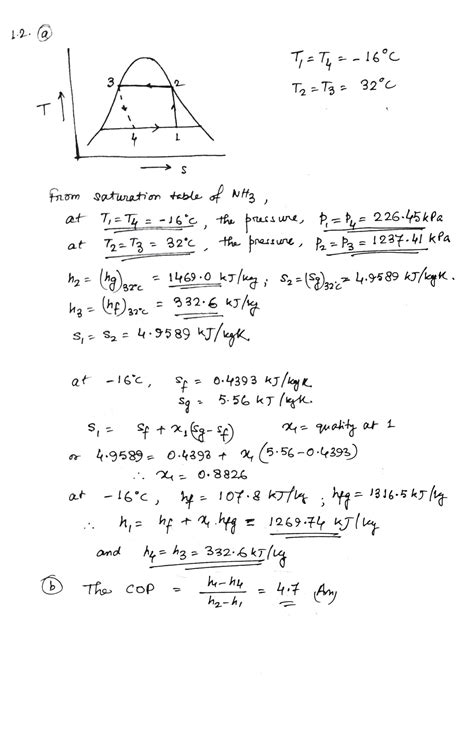 1.2. (a)
T₁ = T₄ = -16°C
T₂ = T₃ = 32°C
3 2
T ↑
4 1
→ s
From saturation table of NH₃,
at T₁ = T₄ = -16°C, the pressure, P₁ = P₄ = 226.45 kPa
at T₂ = T₃ = 32°C, the pressure, P₂ = P₃ = 1237.41 kPa
h₂ = (hg)32°C = 1469.0 kJ/kg ; s₂ = (sg)32°C = 4.9589 kJ/kgK.
h₃ = (hf)32°C = 332.6 kJ/kg
s₁ = s₂ = 4.9589 kJ/kgK
at -16°C, sf = 0.4393 kJ/kgK
sg = 5.56 kJ/kgK.
s₁ = sf + x₁(sg-sf) x₁ = quality at 1
or 4.9589 = 0.4393 + x₁(5.56-0.4393)
∴ x₁ = 0.8826
at -16°C, hf = 107.8 kJ/kg ; hfg = 1316.5 kJ/kg
∴ h₁ = hf + x₁ hfg = 1269.74 kJ/kg
and h₄ = h₃ = 332.6 kJ/kg
(b) The COP = h₁-h₄ / h₂-h₁ = 4.7 (Ans)